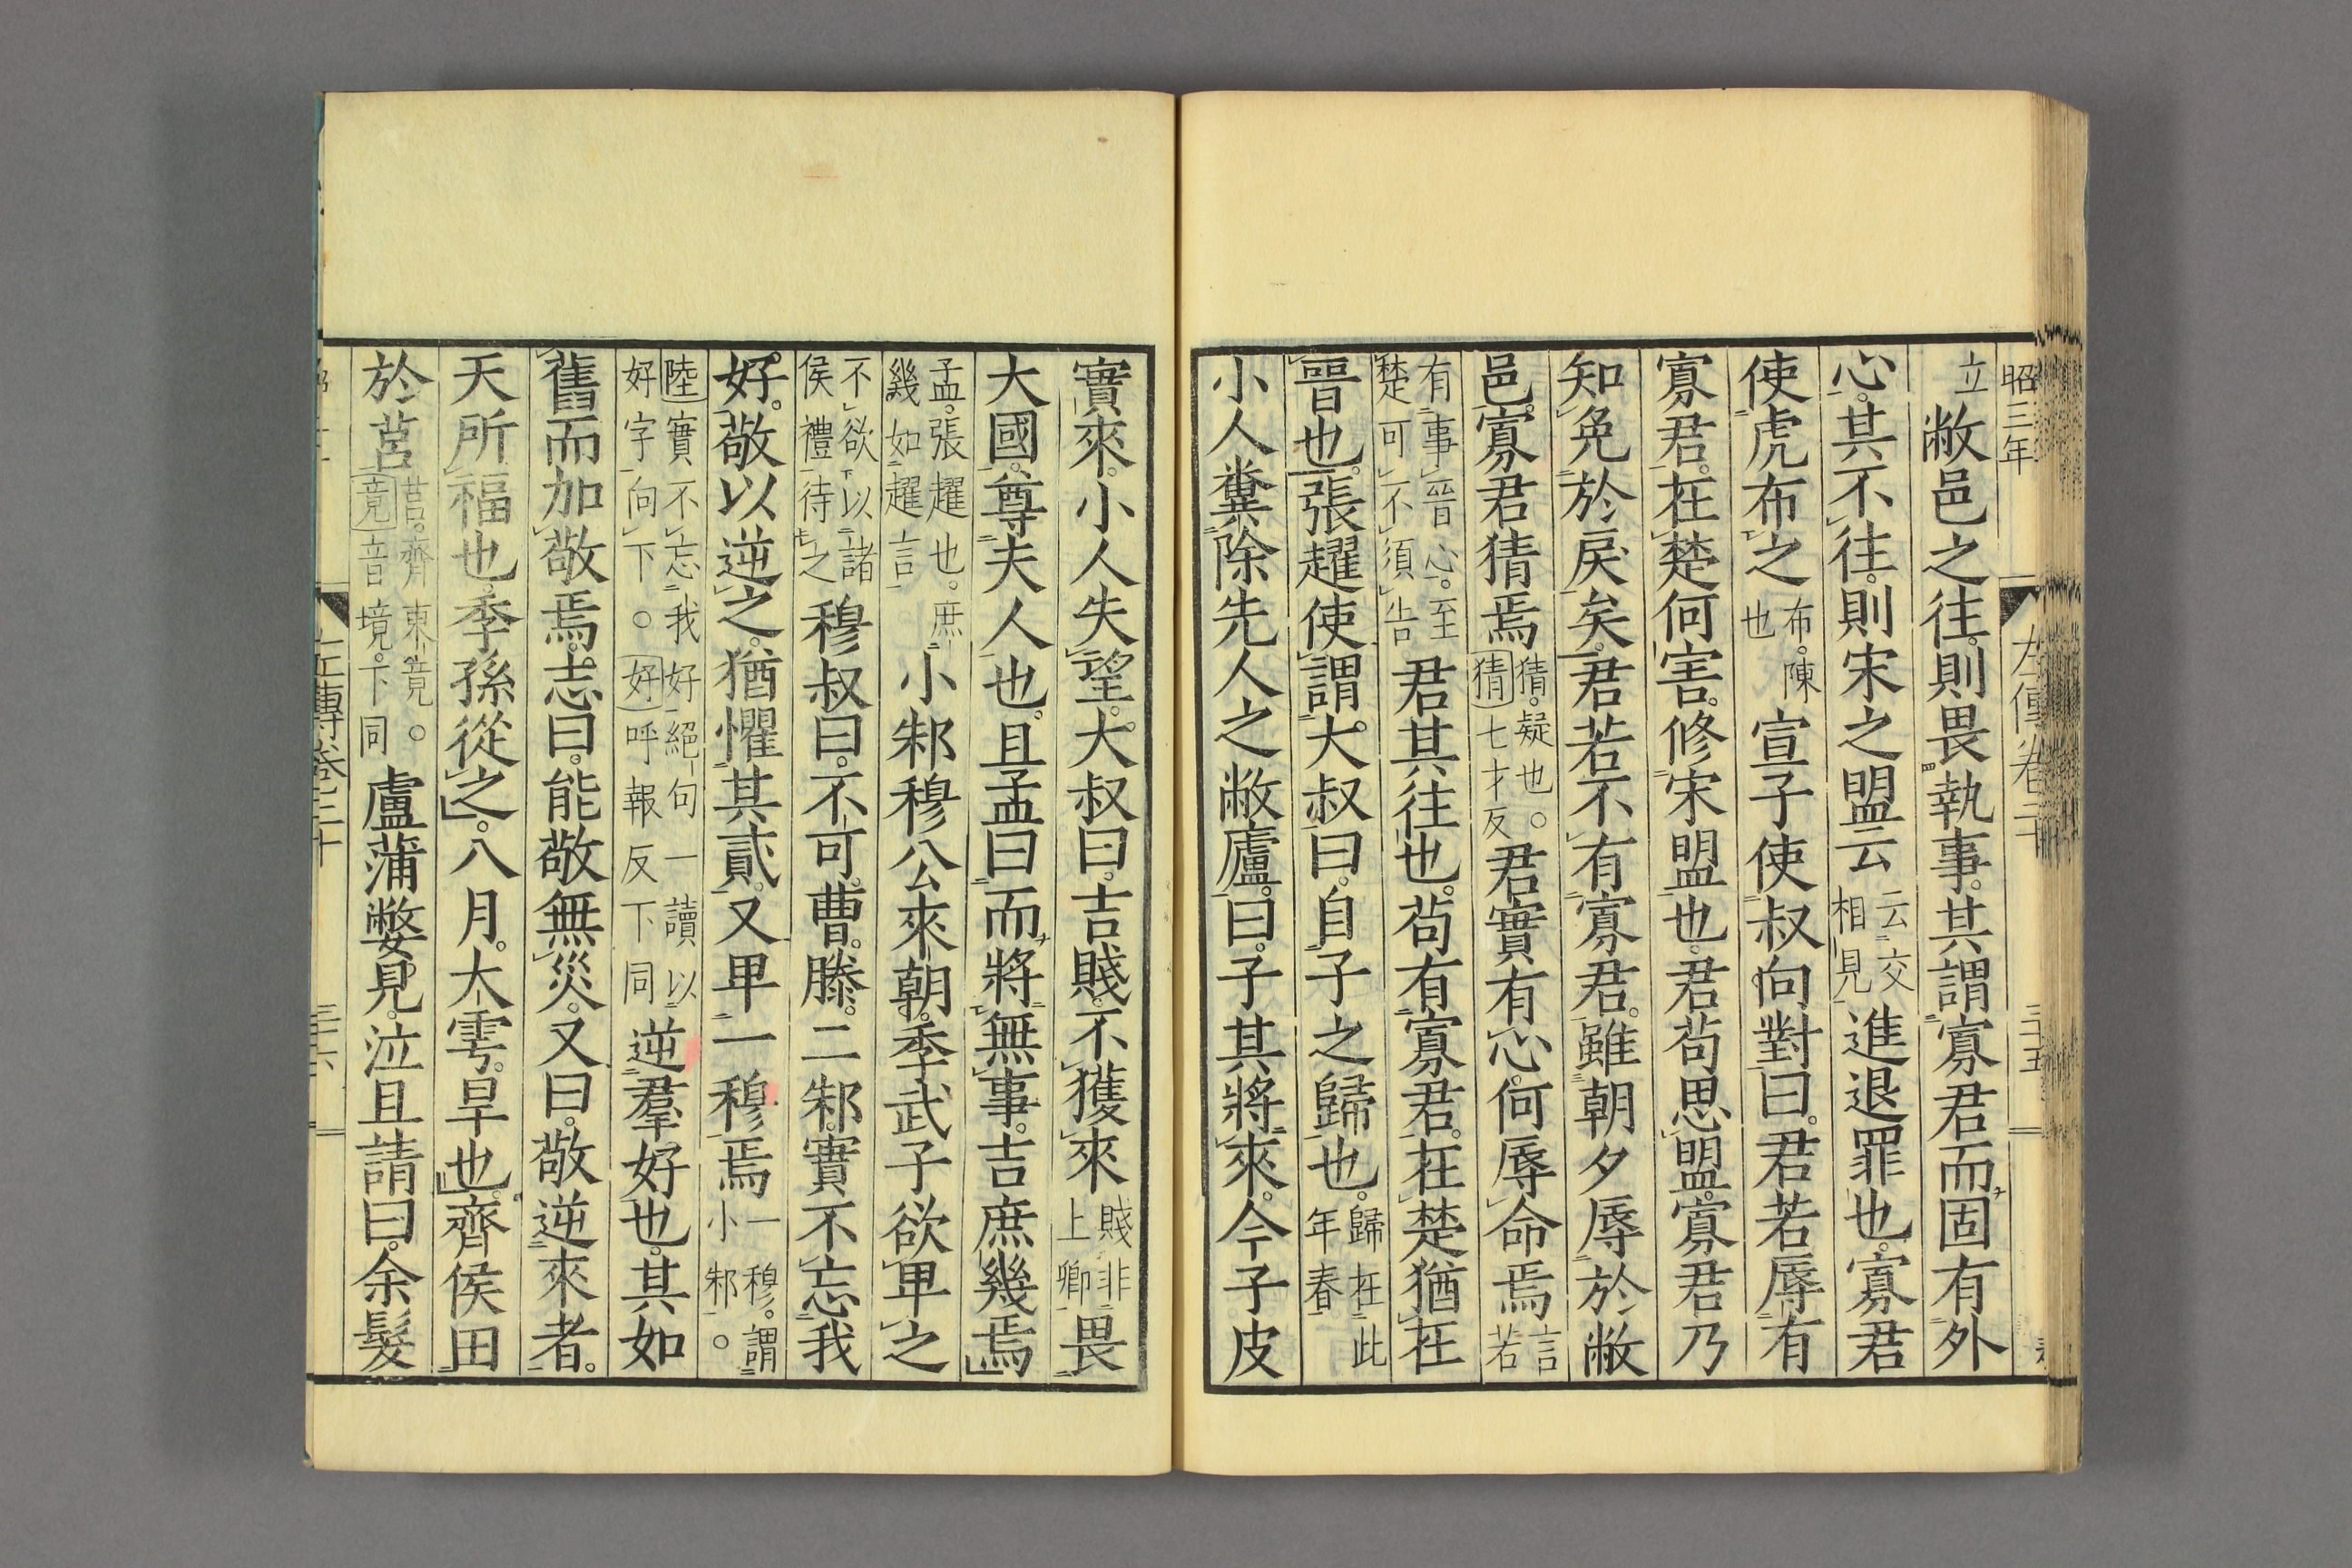 昭三年
左傳卷二十
三十五
立敝邑之往。則畏執事。其謂寡君而固有外
心。其不往。則宋之盟云云交相見進退罪也。寡君
使虎布之布。陳也宣子使叔向對曰。君若辱有
寡君。在楚何害。修宋盟也。君苟思盟。寡君乃
知免於戾矣。君若不有寡君。雖朝夕辱於敝
邑。寡君猜焉猜。疑也。猜七才反君實有心。何辱命焉言若
有事晉心。至楚可不須告君其往也。苟有寡君。在楚猶在
晉也。張趯使謂大叔曰。自子之歸也。歸在此年春
小人糞除先人之敝廬。曰。子其將來。今子皮
實來。小人失望。大叔曰。吉賤。不獲來賤非上卿畏
大國。尊夫人也。且孟曰。而將無事。吉庶幾焉
孟。張趯也。庶幾如趯言小邾穆公來朝。季武子欲卑之
不欲以諸侯禮待之穆叔曰。不可。曹。滕。二邾。實不忘我
好。敬以逆之。猶懼其貳。又卑一穆焉一穆。謂小邾。
陸實不忘我好絕句一讀以好字向下。好呼報反下同逆羣好也。其如
舊而加敬焉。志曰。能敬無災。又曰。敬逆來者。
天所福也。季孫從之。八月。大雩。旱也。齊侯田
於莒莒。齊東竟。竟音境。下同盧蒲嫳見。泣且請曰。余髮
左傳卷二十
三十六